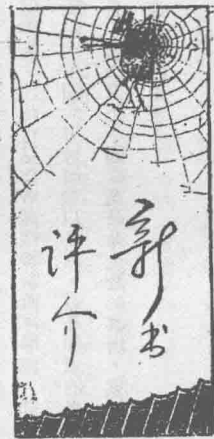 新书
评介